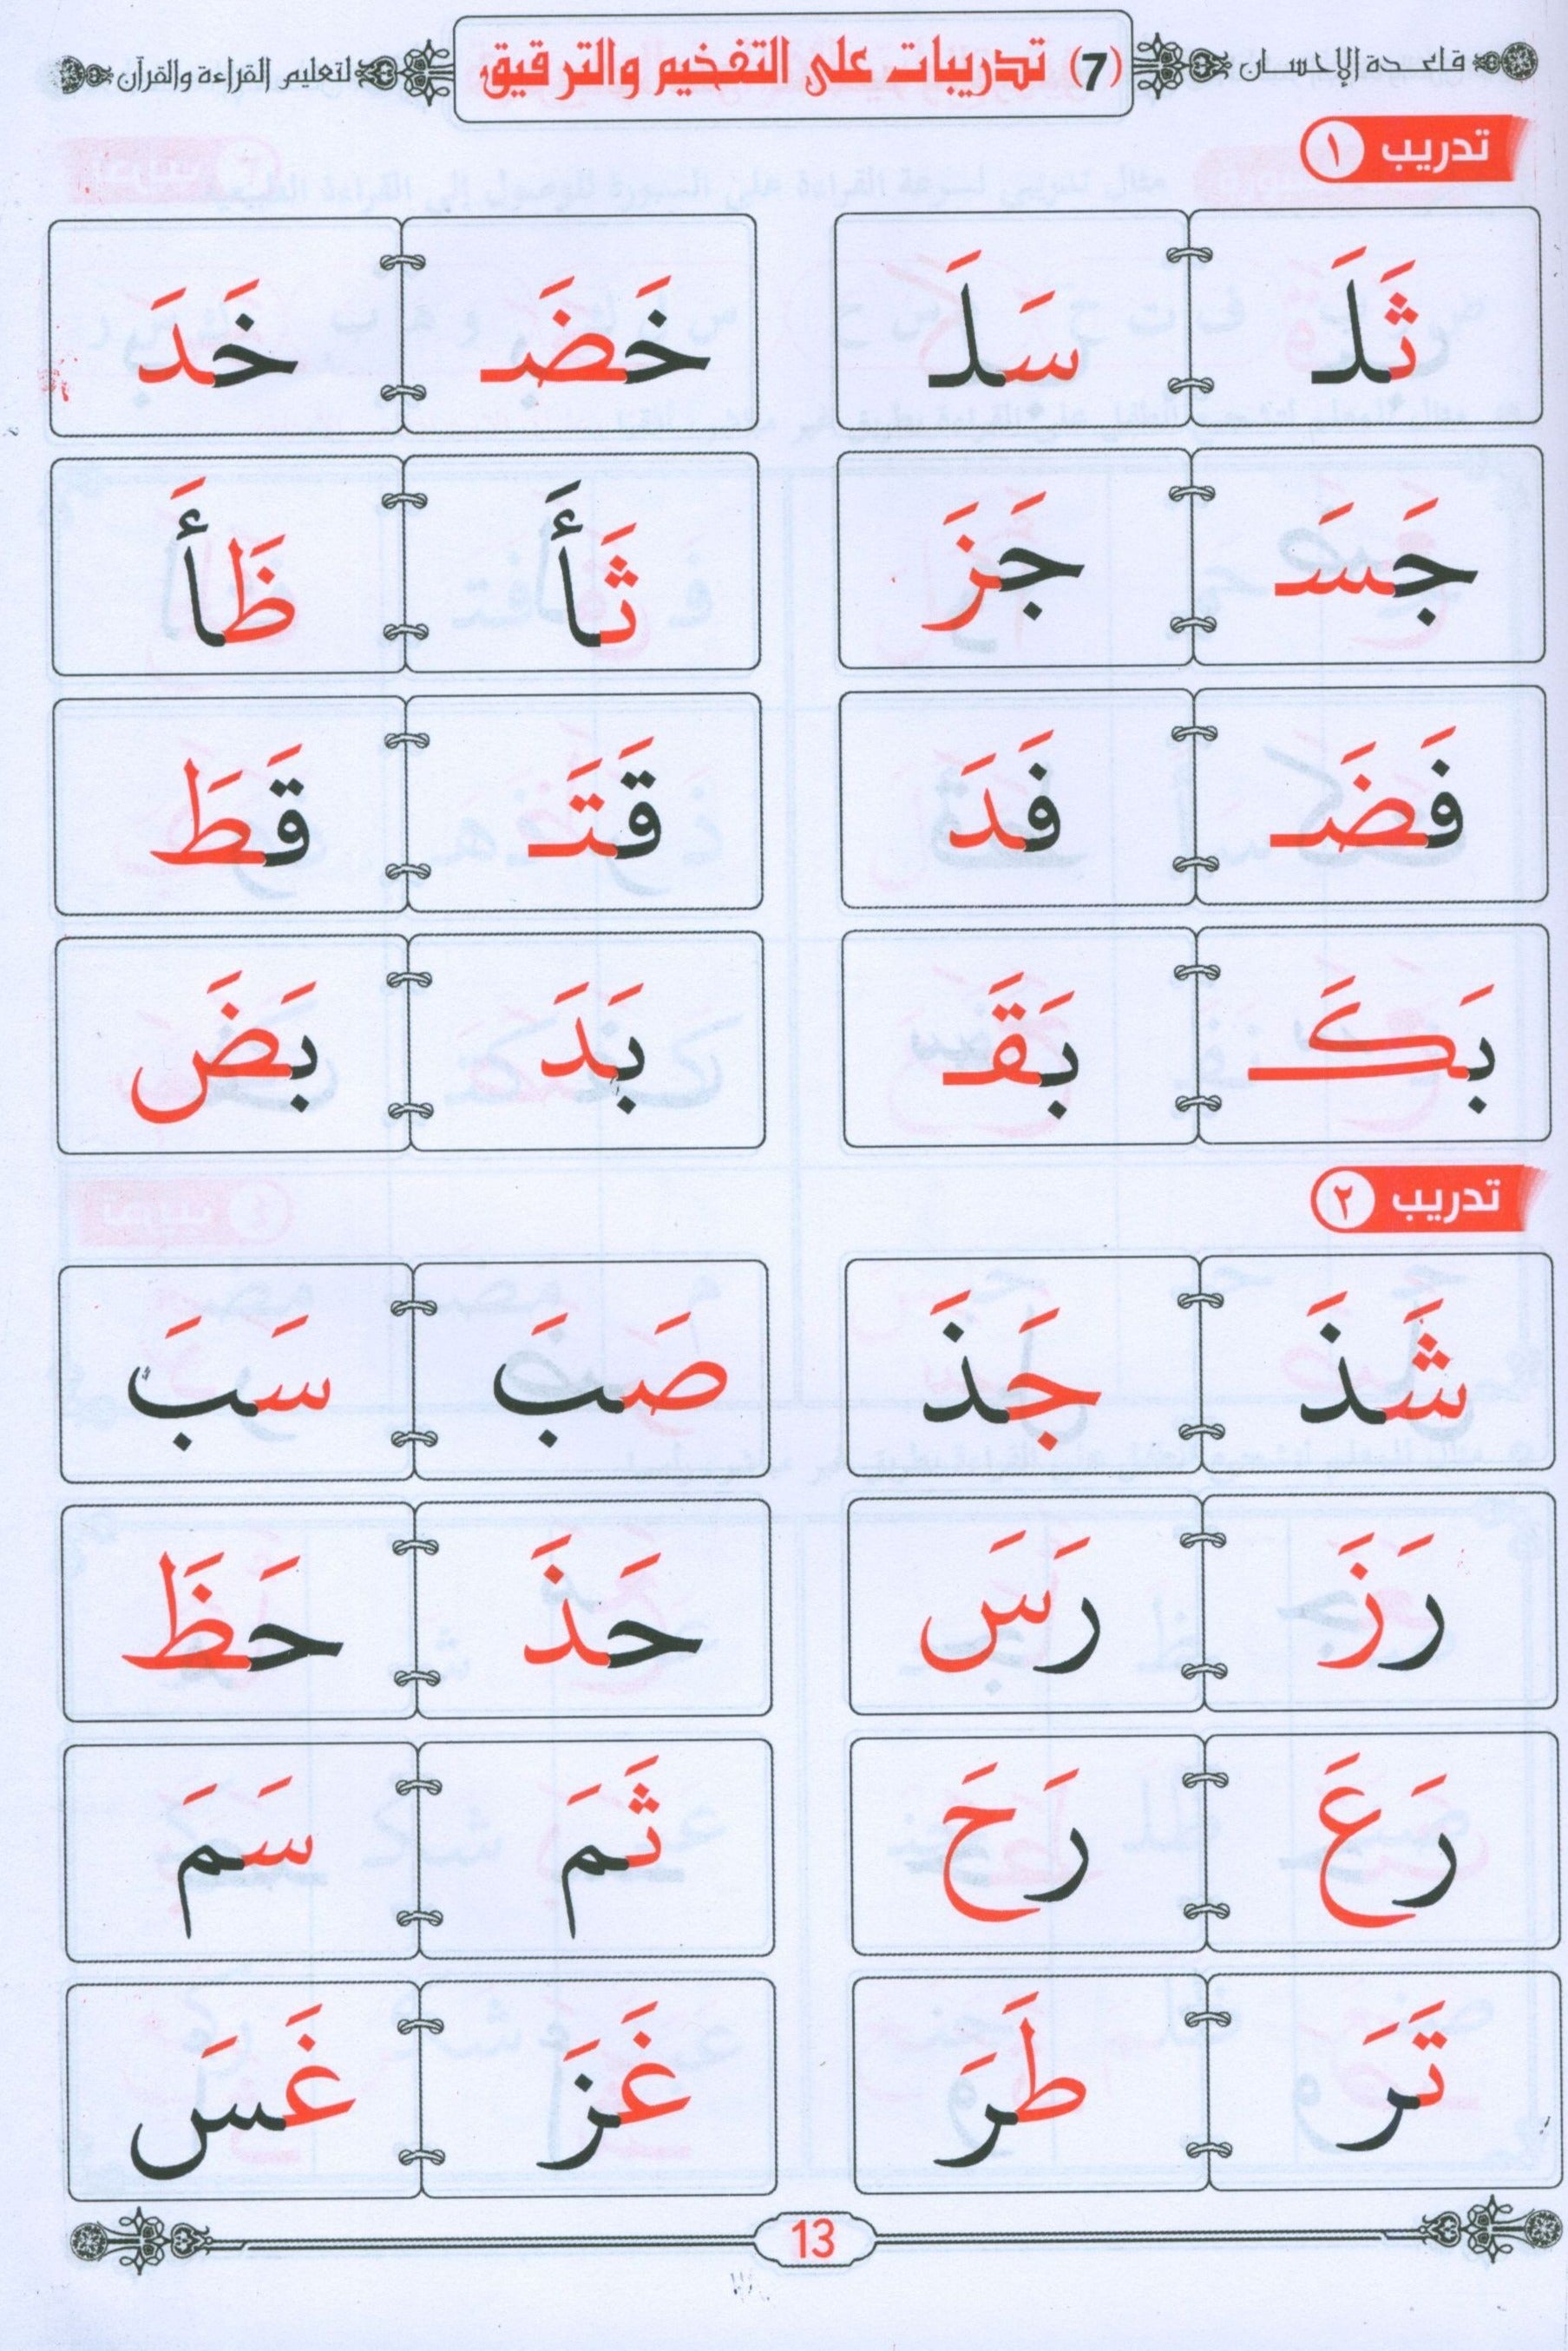 قاعدة الإحسان (7) تدريبات على التفخيم والترقيق لتعليم القراءة والقرآن
تدريب ١
ثَلَـ سَلَـ خَضَـ خَدَ
جَسَـ جَزَ ثَأَ ظَأَ
فَضَـ فَدَ قَتَـ قَطَ
بَكَـ بَقَـ بَدَ بَضَ
تدريب ٢
شَذَ جَذَ صَبَ سَبَ
رَزَ رَسَ حَذَ حَظَ
رَعَ رَحَ ثَمَ سَمَ
تَرَ طَرَ غَزَ غَسَ
13